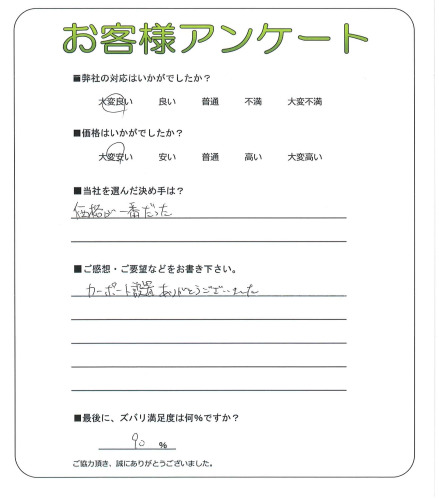 お客様アンケート
■弊社の対応はいかがでしたか？
大変良い 良い 普通 不満 大変不満
■価格はいかがでしたか？
大変安い 安い 普通 高い 大変高い
■当社を選んだ決め手は？
価格が一番だった
■ご感想・ご要望などをお書き下さい。
カーポート設置ありがとうございました
■最後に、ズバリ満足度は何％ですか？
90 ％
ご協力頂き、誠にありがとうございました。